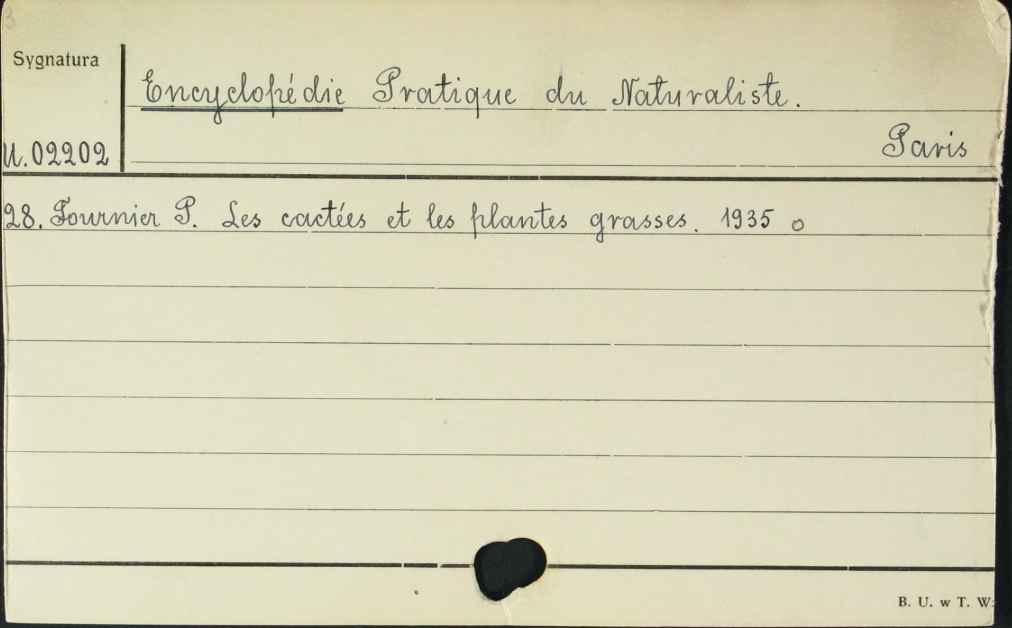 Sygnatura
Encyclopédie Pratique du Naturaliste.
U.02202
Paris
28. Fournier P. Les cactées et les plantes grasses. 1935 o
B. U. w T. W: